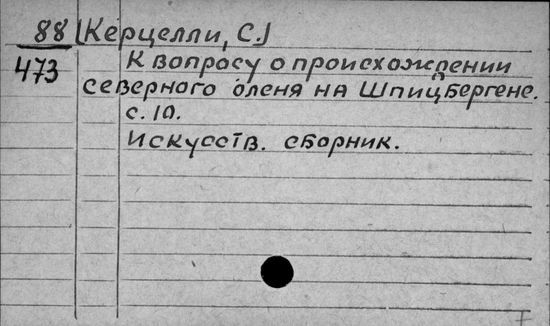 88 [Керцелли, С.]
473 К вопросу о происхождении
северного оленя на Шпицбергене.
с. 10.
Искусств. сборник.